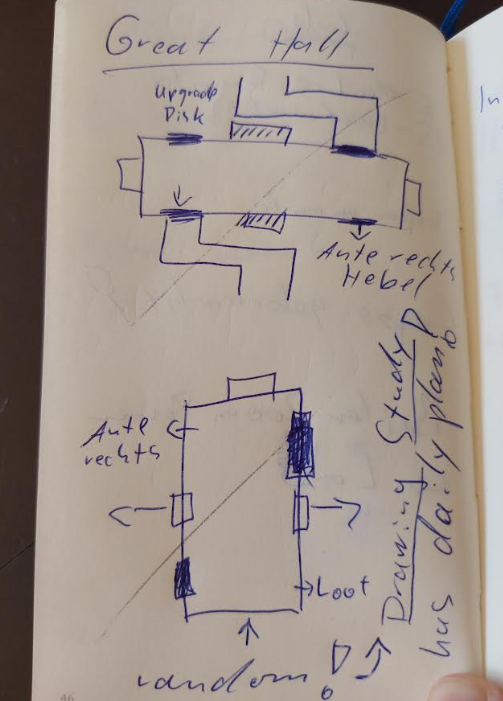 Great Hall
Upgrade
Disk
In
Ante rechts
Hebel
Ante
rechts
Loot
random!
Drawing Study!
has daily plan!
46